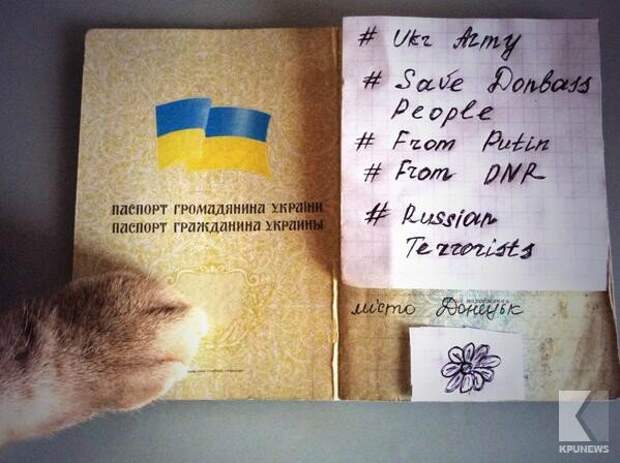 ПАСПОРТ ГРОМАДЯНИНА УКРАЇНИ
ПАСПОРТ ГРАЖДАНИНА УКРАИНЫ
# Ukr Army
# Save Donbass
People
# From Putin
# From DNR
# Russian
Terrorists
місто Донецьк
KPUNEWS